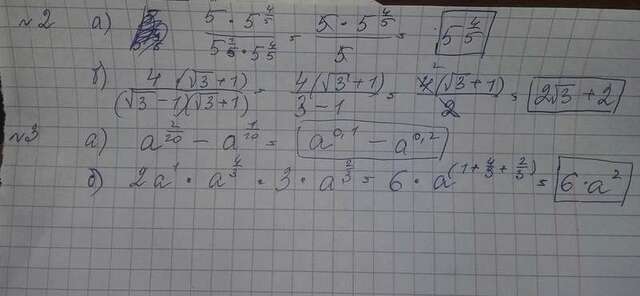 №2 а) 5 · 5^(4/5) / 5^(1/5) · 5^(4/5) = 5 · 5^(4/5) / 5 = 5^(4/5)
б) 4 · (√3 + 1) / (√3 − 1)(√3 + 1) = 4(√3 + 1) / 3 − 1 = 4(√3 + 1) / 2 = 2√3 + 2
№3 а) a^(2/20) − a^(1/20) = a^(0,1) − a^(0,2)
б) 2a^1 · a^(4/3) · 3 · a^(2/3) = 6 · a^(1 + 4/3 + 2/3) = 6 · a^2